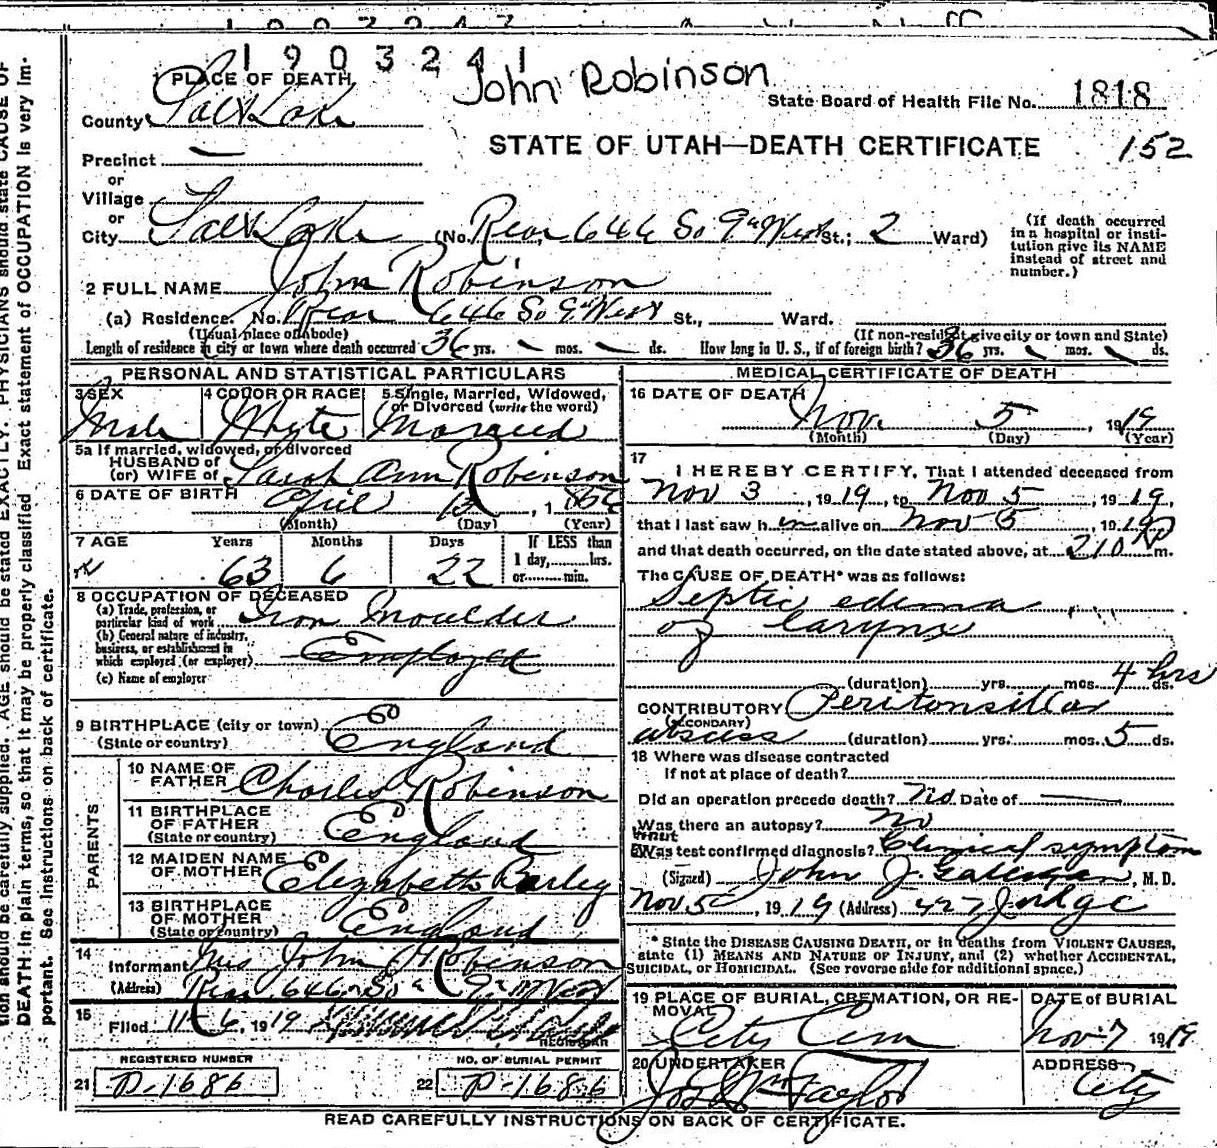 1903241
John Robinson
PLACE OF DEATH
State Board of Health File No. 1818
County Salt Lake
STATE OF UTAH—DEATH CERTIFICATE 152
Precinct —
or
Village
or
City Salt Lake (No. Rear 646 So 9th West St.; 2 Ward)
(If death occurred in a hospital or institution give its NAME instead of street and number.)
2 FULL NAME John Robinson
(a) Residence. No. Rear 646 So 9th West St., Ward.
(Usual place of abode) (If non-resident give city or town and State)
Length of residence in city or town where death occurred 36 yrs. - mos. - ds. How long in U. S., if of foreign birth? 36 yrs. - mos. - ds.
PERSONAL AND STATISTICAL PARTICULARS
3 SEX Male
4 COLOR OR RACE White
5 Single, Married, Widowed, or Divorced (write the word) Married
5a If married, widowed, or divorced
HUSBAND of
(or) WIFE of Sarah Ann Robinson
6 DATE OF BIRTH April 13, 1856
(Month) (Day) (Year)
7 AGE Years Months Days If LESS than
1 day, hrs.
63 6 22 or min.
8 OCCUPATION OF DECEASED
(a) Trade, profession, or particular kind of work Iron Moulder
(b) General nature of industry, business, or establishment in which employed (or employer) Employee
(c) Name of employer
9 BIRTHPLACE (city or town)
(State or country) England
PARENTS
10 NAME OF FATHER Charles Robinson
11 BIRTHPLACE OF FATHER (State or country) England
12 MAIDEN NAME OF MOTHER Elizabeth Barley
13 BIRTHPLACE OF MOTHER (State or country) England
14 Informant Mrs John Robinson
(Address) Rear 646 So 9th West
15 Filed 11-6, 1919
REGISTRAR
REGISTERED NUMBER NO. OF BURIAL PERMIT
21 D-1686 22 D-1686
MEDICAL CERTIFICATE OF DEATH
16 DATE OF DEATH
Nov. 5, 1919
(Month) (Day) (Year)
17 I HEREBY CERTIFY, That I attended deceased from
Nov 3, 1919, to Nov 5, 1919,
that I last saw him alive on Nov 5, 1919
and that death occurred, on the date stated above, at 210 P m.
The CAUSE OF DEATH* was as follows:
Septic edema
of larynx
(duration) yrs. mos. 4 hrs ds.
CONTRIBUTORY Peritonsillar
(SECONDARY)
abscess (duration) yrs. mos. 5 ds.
18 Where was disease contracted
If not at place of death?
Did an operation precede death? No Date of —
Was there an autopsy? No
What test confirmed diagnosis? Clinical symptom
(Signed) John J. Galligan, M. D.
Nov 5, 1919 (Address) 427 Judge
* State the DISEASE CAUSING DEATH, or in deaths from VIOLENT CAUSES, state (1) MEANS AND NATURE OF INJURY, and (2) whether ACCIDENTAL, SUICIDAL, OR HOMICIDAL. (See reverse side for additional space.)
19 PLACE OF BURIAL, CREMATION, OR REMOVAL City Cem
DATE of BURIAL Nov 7 1919
20 UNDERTAKER Jos Wm Taylor
ADDRESS City
READ CAREFULLY INSTRUCTIONS ON BACK OF CERTIFICATE.
tion should be carefully supplied. AGE should be stated EXACTLY. PHYSICIANS should state CAUSE OF
DEATH in plain terms, so that it may be properly classified. Exact statement of OCCUPATION is very im-
portant. See instructions on back of certificate.